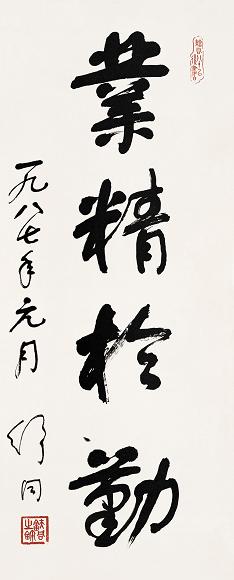 業精於勤
一九八七年元月 舒同